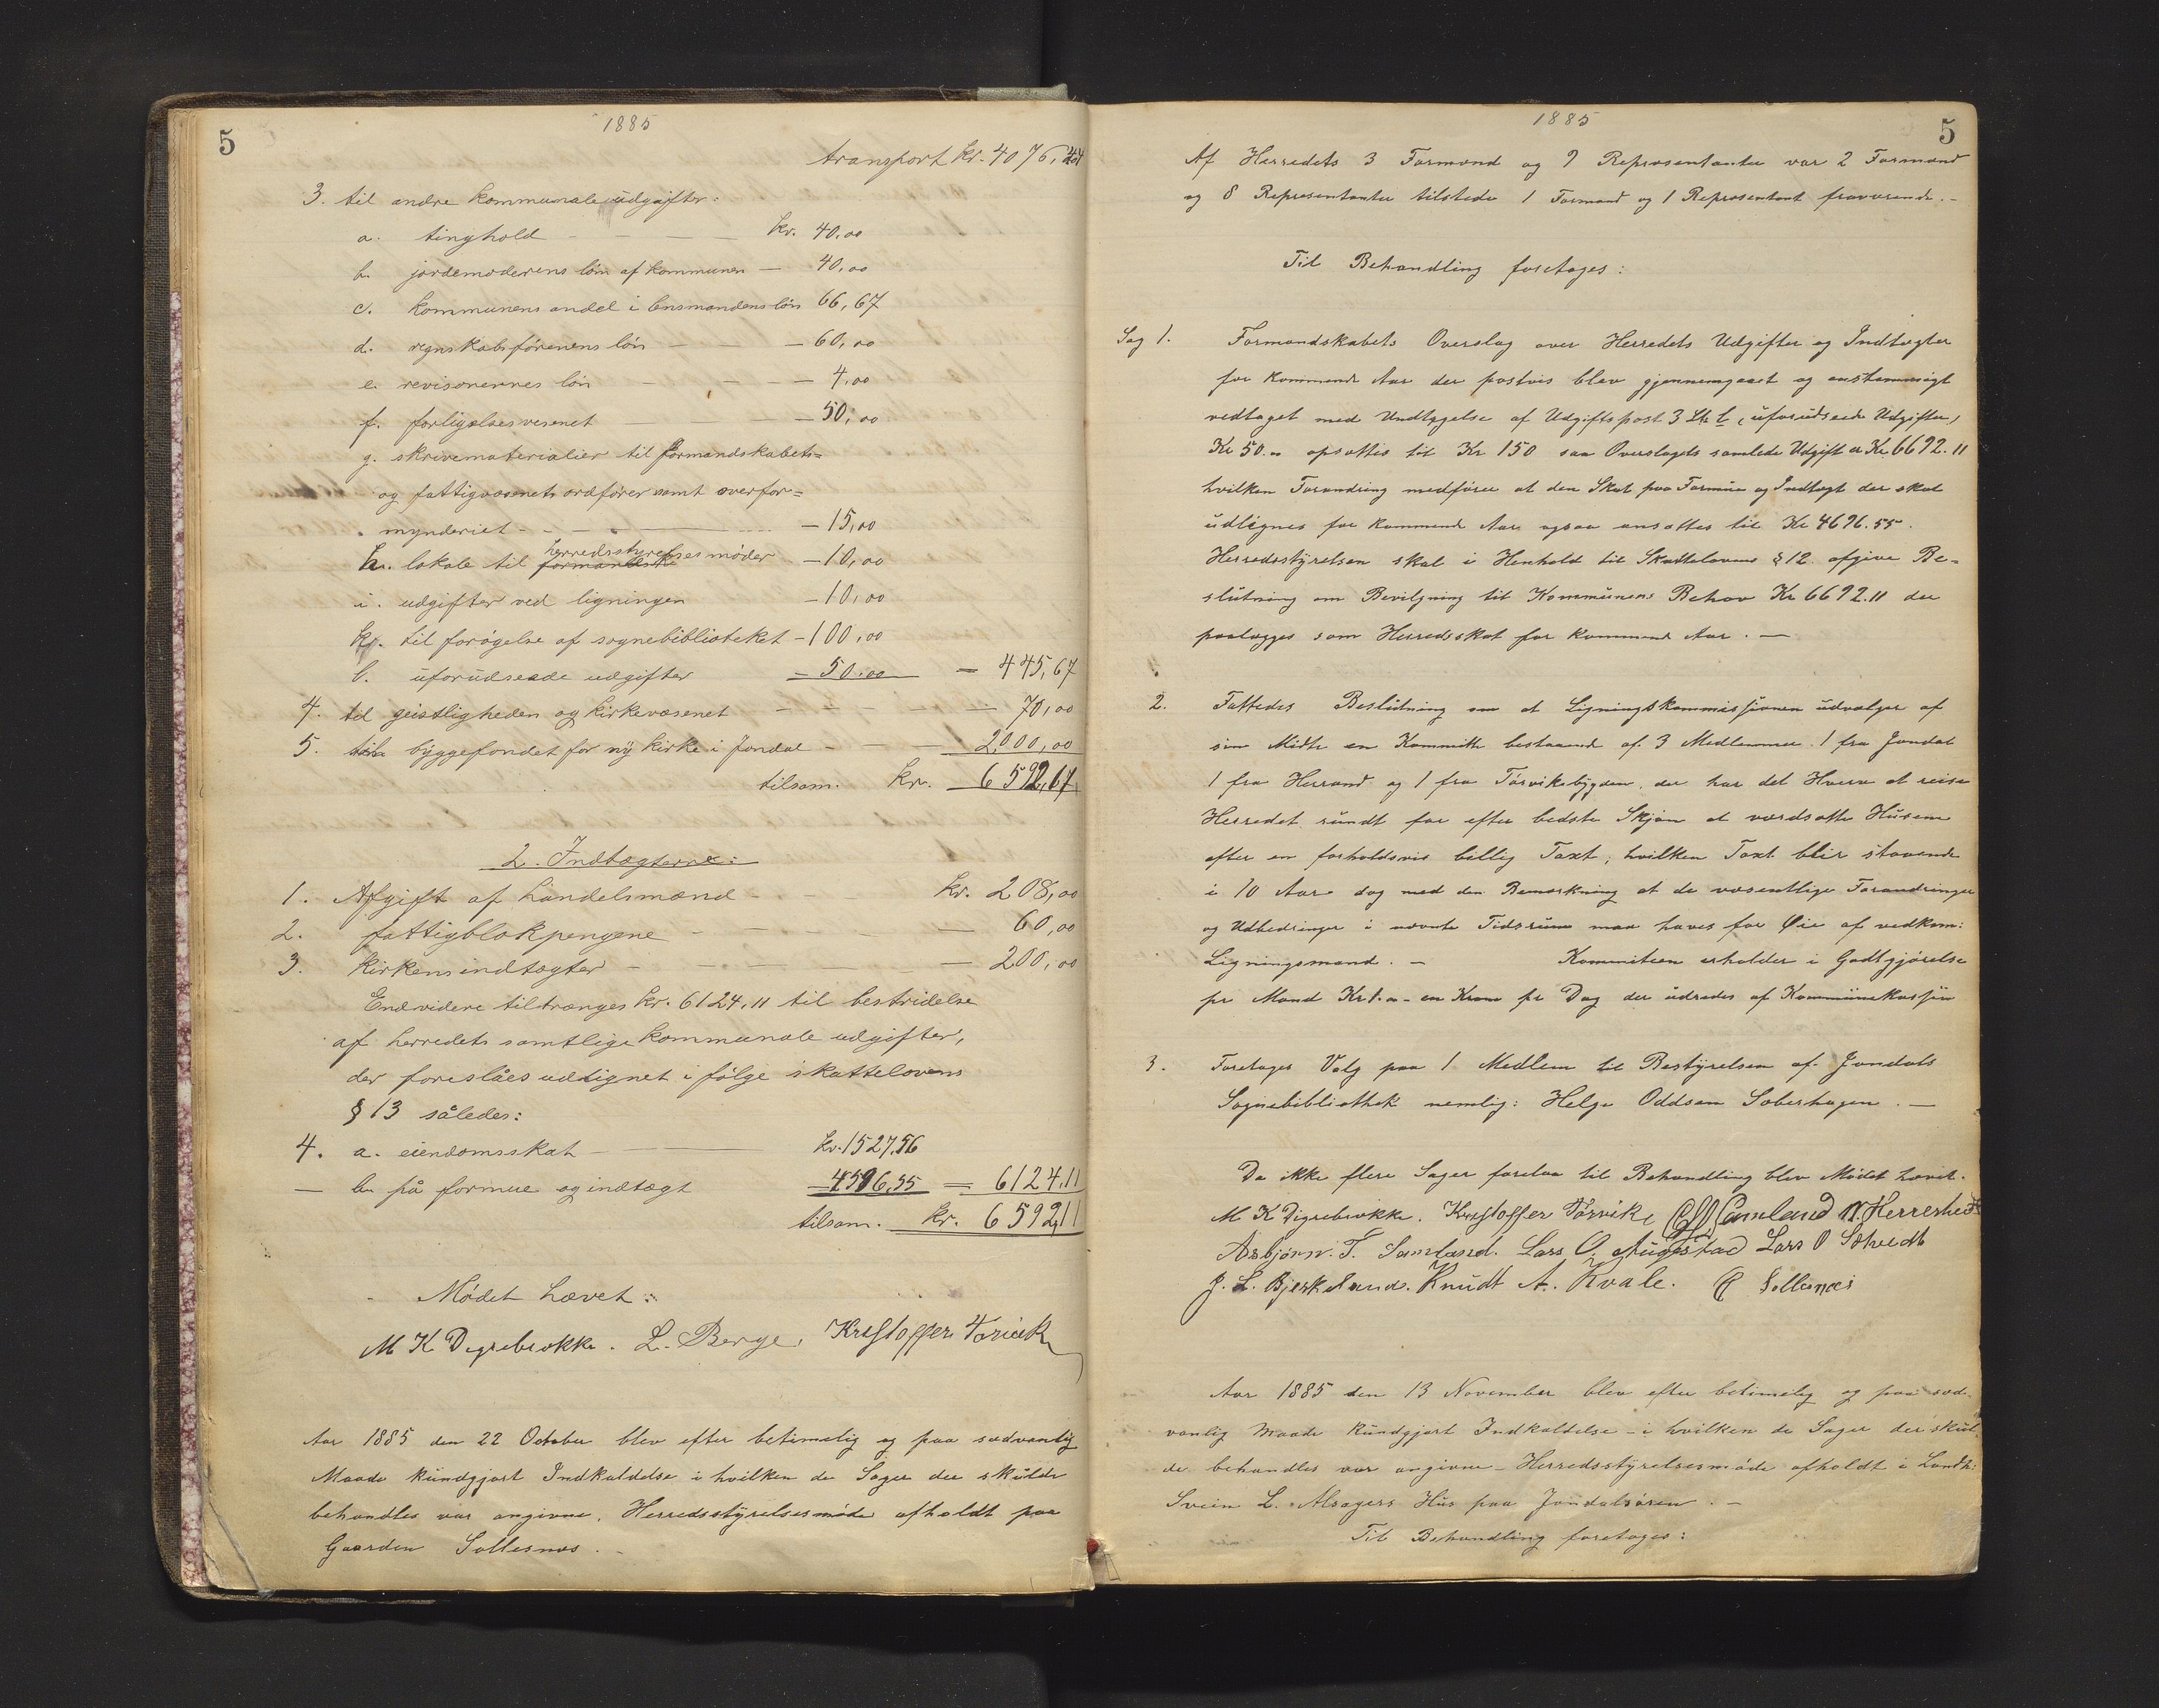 1885
5
transport kr. 4076,44
3. til andre kommunale udgifter:
a. tinghold - - - kr. 40,00
b. jordemoderens løn af kommunen - 40,00
c. kommunens andel i lensmandens løn 66,67
d. regnskabsførerens løn - - 60,00
e. revisorernes løn - - - 4,00
f. forligelsesvesenet - - - 50,00
g. skrivematerialier til formandskabets=
og fattigvæsenets ordfører samt overfor=
mynderiet - - - 15,00
h. lokale til herredsstyrelsesmøder - 10,00
i. udgifter ved ligningen - 10,00
k. til forøgelse af sognebiblioteket - 100,00
l. uforudseede udgifter - 50,00 = 445,67
4. til geistligheden og kirkevæsenet - - - 70,00
5. til byggefondet for ny kirke i Jondal - - 2000,00
tilsam. kr. 6592,11
2. Indtægterne:
1. Afgift af handelsmænd - - - kr. 208,00
2. fattigblokpengene - - - 60,00
3. kirkens indtægter - - - 200,00
Endvidere tiltrænges kr. 6124,11 til bestridelse
af herredets samtlige kommunale udgifter,
der foreslåes udlignet i følge skattelovens
§ 13 således:
4. a. eiendomsskat - kr. 1527,56
- b. på formue og indtægt - 4596,55 = 6124,11
tilsam. kr. 6592,11
Mødet hævet:
M K Digrebrække. L. Berge, Kristoffer Tørvik
Aar 1885 den 22 October blev efter betimelig og paa sædvanlig
Maade kundgjort Indkaldelse i hvilken de Sager der skulde
behandles var angivne, Herredsstyrelsesmøde afholdt paa
Gaarden Sollesnæs.
1885
5
Af Herredets 3 Formænd og 9 Repræsentanter var 2 Formænd
og 8 Repræsentanter tilstede 1 Formand og 1 Repræsentant fraværende. -
Til Behandling foretages:
Sag 1. Formandskabets Overslag over Herredets Udgifter og Indtægter
for kommende Aar der postvis blev gjennemgaaet og enstemmigt
vedtaget med Undtagelse af Udgiftspost 3 Lit. l (uforudseede Udgifter)
Kr 50.00 opsattes til Kr 150 saa Overslagets samlede Udgift er Kr 6692.11
hvilken Forandring medfører at den Skat paa Formue og Indtægt der skal
udlignes for kommende Aar ogsaa ansættes til Kr 4696.55.
Herredsstyrelsen skal i Henhold til Skattelovens § 12 afgive Be=
slutning om Bevilgning til Kommunens Behov Kr 6692.11 der
paalægges som Herredsskat for kommende Aar. -
2. Fattedes Beslutning om at Ligningskommissionen udvælger af
sin Midte en Kommitte bestaaende af 3 Medlemmer. 1 fra Jondal
1 fra Herrand og 1 fra Tørviksbygden, der har det Hverv at reise
Herredet rundt for efter bedste Skjøn at værdsætte Husene
efter en forholdsvis billig Taxt, hvilken Taxt blir staaende
i 10 Aar dog med den Bemærkning at de væsentlige Forandringer
og Udbedringer i nævnte Tidsrum maa haves for Øie af vedkom:
Ligningsmænd. - Kommiteen erholder i Godtgjørelse
pr Mand Kr 1.00 - en Krone pr Dag der udredes af Kommunekassen
3. Foretages Valg paa 1 Medlem til Bestyrelsen af Jondals
Sognebibliothek nemlig: Helge Oddsen Soberhagen. -
Da ikke flere Sager forelaa til Behandling blev Mødet hævet.
M K Digrebrække. Kristoffer Tørvike Samland N. Herrestvedt
Asbjørn. T. Samland. Lars O. Augestad Lars O Sætvedt
J. L. Bjerkeland. Knudt A. Kvale. Sollesnæs
Aar 1885 den 13 November blev efter betimelig og paa sæd-
vanlig Maade kundgjort Indkaldelse - i hvilken de Sager der skul
de behandles var angivne - Herredsstyrelsesmøde afholdt i Landh:
Svein L. Alsagers Hus paa Jondalsøren. -
Til Behandling foretages: